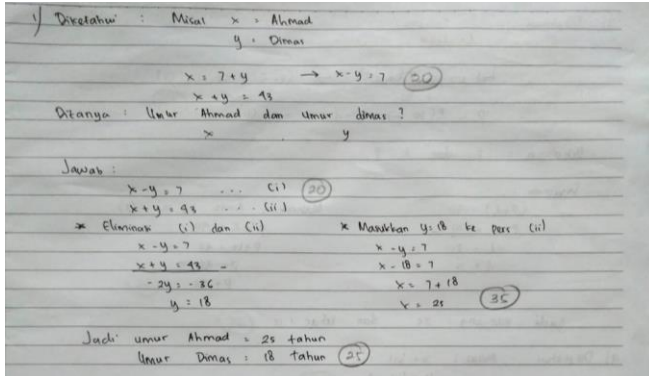 1) Diketahui : Misal x = Ahmad
y = Dimas
x = 7 + y → x - y = 7 (20)
x + y = 43
Ditanya : Umur Ahmad dan umur dimas ?
x y
Jawab :
x - y = 7 ... (i) (20)
x + y = 43 ... (ii)
* Eliminasi (i) dan (ii)
x - y = 7
x + y = 43 -
-2y = -36
y = 18
* Masukkan y = 18 ke pers (ii)
x - y = 7
x - 18 = 7
x = 7 + 18
x = 25 (35)
Jadi umur Ahmad = 25 tahun
Umur Dimas = 18 tahun (25)